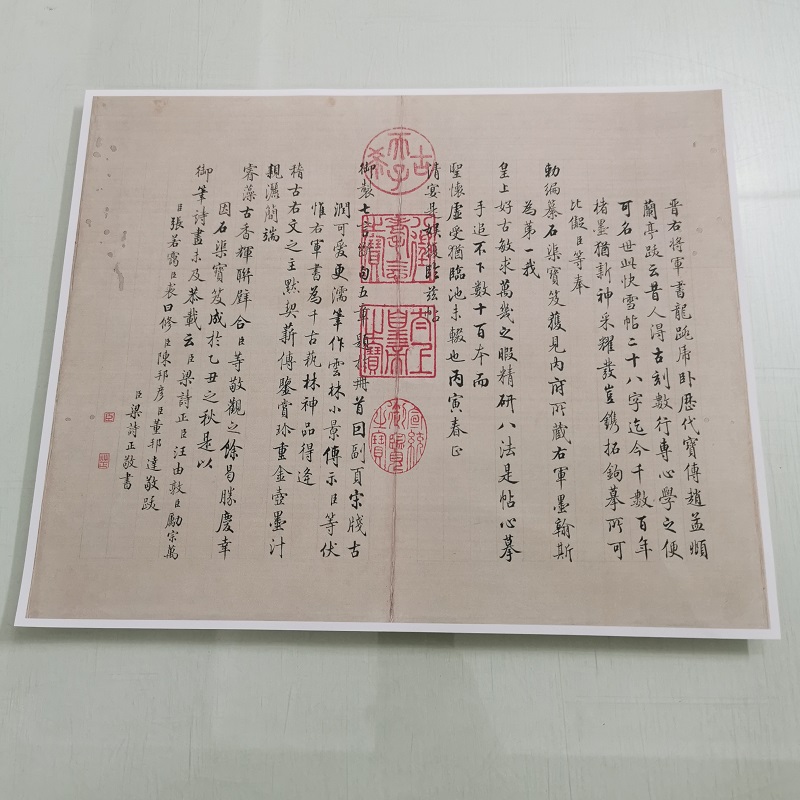 晋右將軍書龍跳虎卧歴代寶傳趙孟頫
蘭亭跋云昔人得古刻數行專心學之便
可名世此快雪帖二十八字迄今千數百年
楮墨猶新神采耀發豈鐫拓鉤摹所可
比儗臣等奉
勅編纂石渠寶笈獲見内府所藏右軍墨翰斯
為第一我
皇上好古敏求萬幾之暇精研八法是帖心摹
手追不下數十百本而
聖懷虛受猶臨池未輟也丙寅春正
清宴是娛復臨兹帖
御製七言絶句五章題於冊首回副頁宋牋古
潤可愛更濡筆作雲林小景傳示臣等伏
惟右軍書為千古蓺林神品得逢
稽古右文之主默契薪傳鑒賞珍重金壺墨汁
親灑簡端
睿藻古香輝聯璧合臣等敬觀之餘曷勝慶幸
因石渠寶笈成於乙丑之秋是以
御筆詩畫未及恭載云臣梁詩正臣汪由敦臣勵宗萬
臣張若靄臣裘曰修臣陳邦彦臣董邦達敬跋
臣梁詩正敬書
古希天子
太上皇帝之寶
宣統御覽之寶